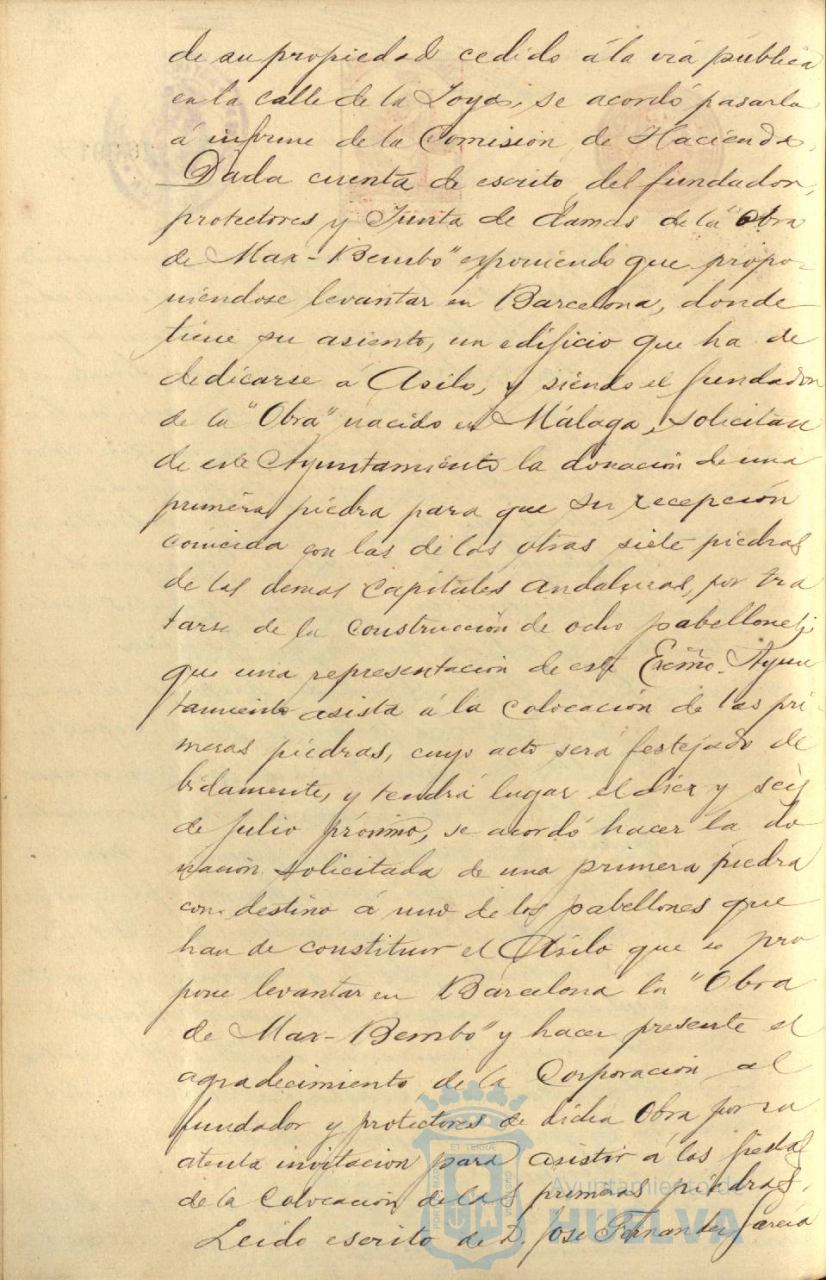 de su propiedad cedido á la via publica
en la calle de la Joya, se acordó pasarla
á informe de la Comisión de Hacienda.
Dada cuenta de escrito del fundador,
protectores y Junta de damas de la "Obra
de Max-Bembo" exponiendo que propo-
niéndose levantar en Barcelona, donde
tiene su asiento, un edificio que ha de
dedicarse á Asilo, y siendo el fundador
de la "Obra" nacido en Málaga, solicitan
de este Ayuntamiento la donación de una
primera piedra para que su recepción
coincida con las de las otras siete piedras
de las demas capitales andaluzas, por tra
tarse de la construcción de ocho pabellones;
que una representación de este Excmo. Ayun
tamiento asista á la colocación de las pri-
meras piedras, cuyo acto será festejado de
bidamente, y tendrá lugar el diez y seis
de Julio próximo, se acordó hacer la do
nación solicitada de una primera piedra
con destino á uno de los pabellones que
han de constituir el Asilo que se pro
pone levantar en Barcelona la "Obra
de Max-Bembo" y hacer presente el
agradecimiento de la Corporación al
fundador y protectores de dicha Obra por su
atenta invitacion para asistir á las fiestas
de la colocación de las primeras piedras.
Leido escrito de D. Jose Fernandez García
Ayuntamiento de
HUELVA